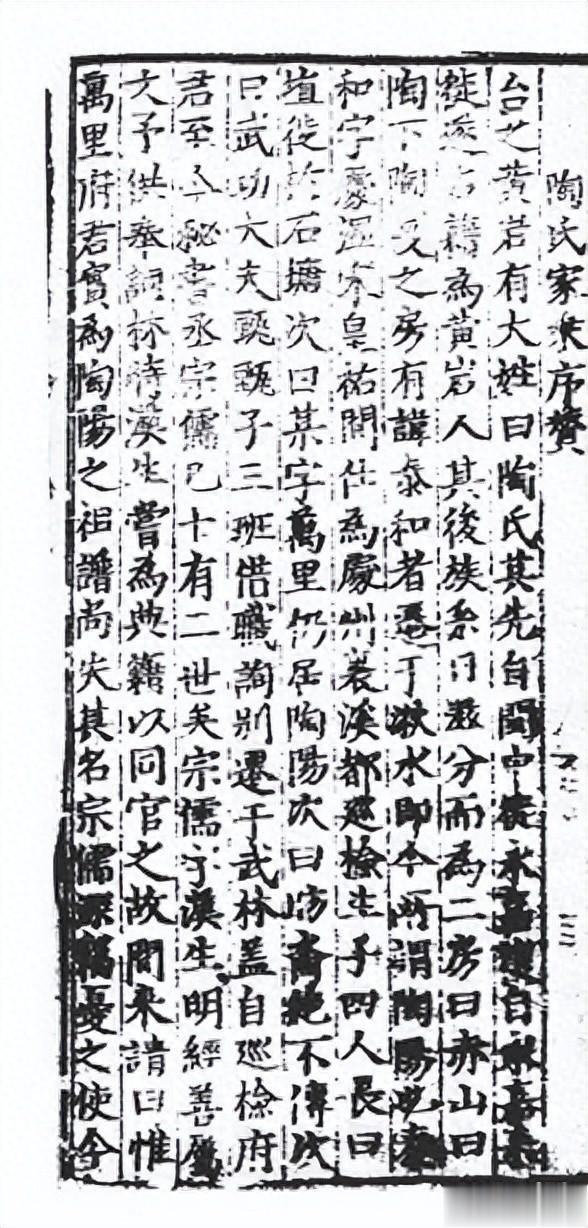 陶氏家乘序贊
台之黃岩有大姓曰陶氏其先自閩中徙永嘉復自永嘉
徙遂占籍為黃岩人其後族系日滋分而為二房曰赤山曰
陶下陶之房有諱泰和者遷于水即今所謂陶陽也泰
和字處溫宋皇祐間仕為處州溪都巡檢生子四人長曰
埴徙於石塘次曰某字萬里仍居陶陽次曰坊裔絕不傳次
曰武功大夫甄甄子三班借職詢別遷于武林蓋自巡檢府
君至今秘書丞宗儒已十有二世矣宗儒字漢生明經善屬
文予供奉詞林時漢生嘗為典籍以同官之故間來請曰惟
萬里府君實為陶陽之祖譜尚失其名宗儒深竊憂之使今